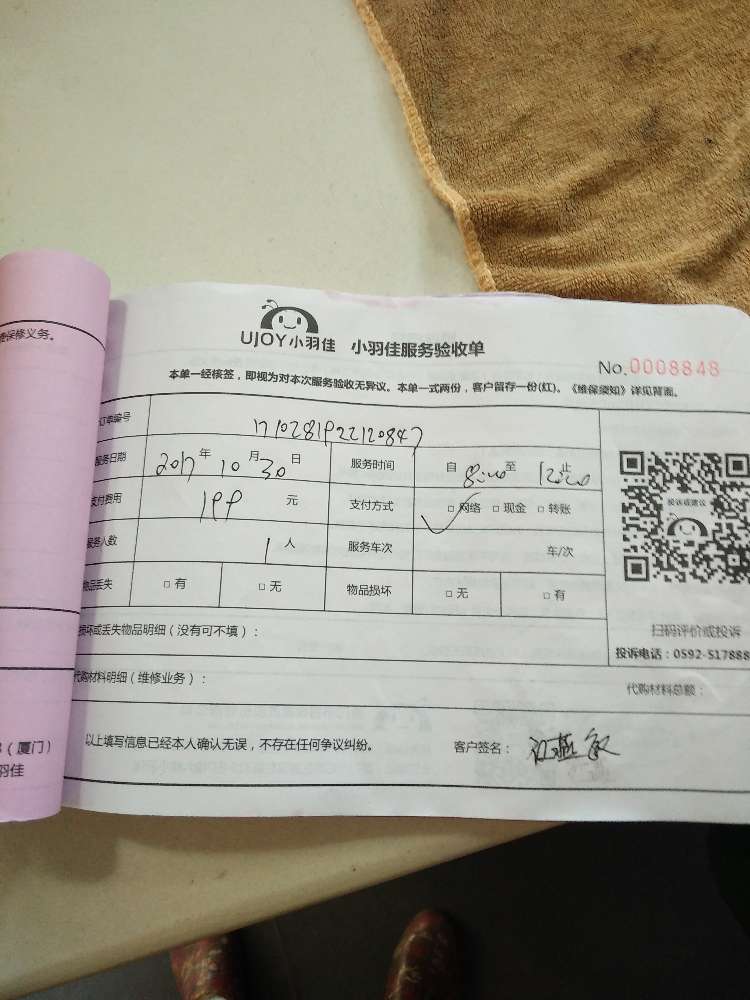 保修义务。
(厦门)
羽佳
UJOY小羽佳 小羽佳服务验收单
No.0008848
本单一经核签，即视为对本次服务验收无异议。本单一式两份，客户留存一份(红)。《维保须知》详见背面。
订单编号 1710281922120847
服务日期 2017年10月30日 服务时间 自8:00至12:00止
支付费用 199元 支付方式 □网络 □现金 □转账
服务人数 1人 服务车次 车/次
物品丢失 □有 □无 物品损坏 □无 □有
投诉或建议
扫码评价或投诉
投诉电话：0592-517888
损坏或丢失物品明细（没有可不填）：
代购材料明细（维修业务）： 代购材料总额：
以上填写信息已经本人确认无误，不存在任何争议纠纷。 客户签名：